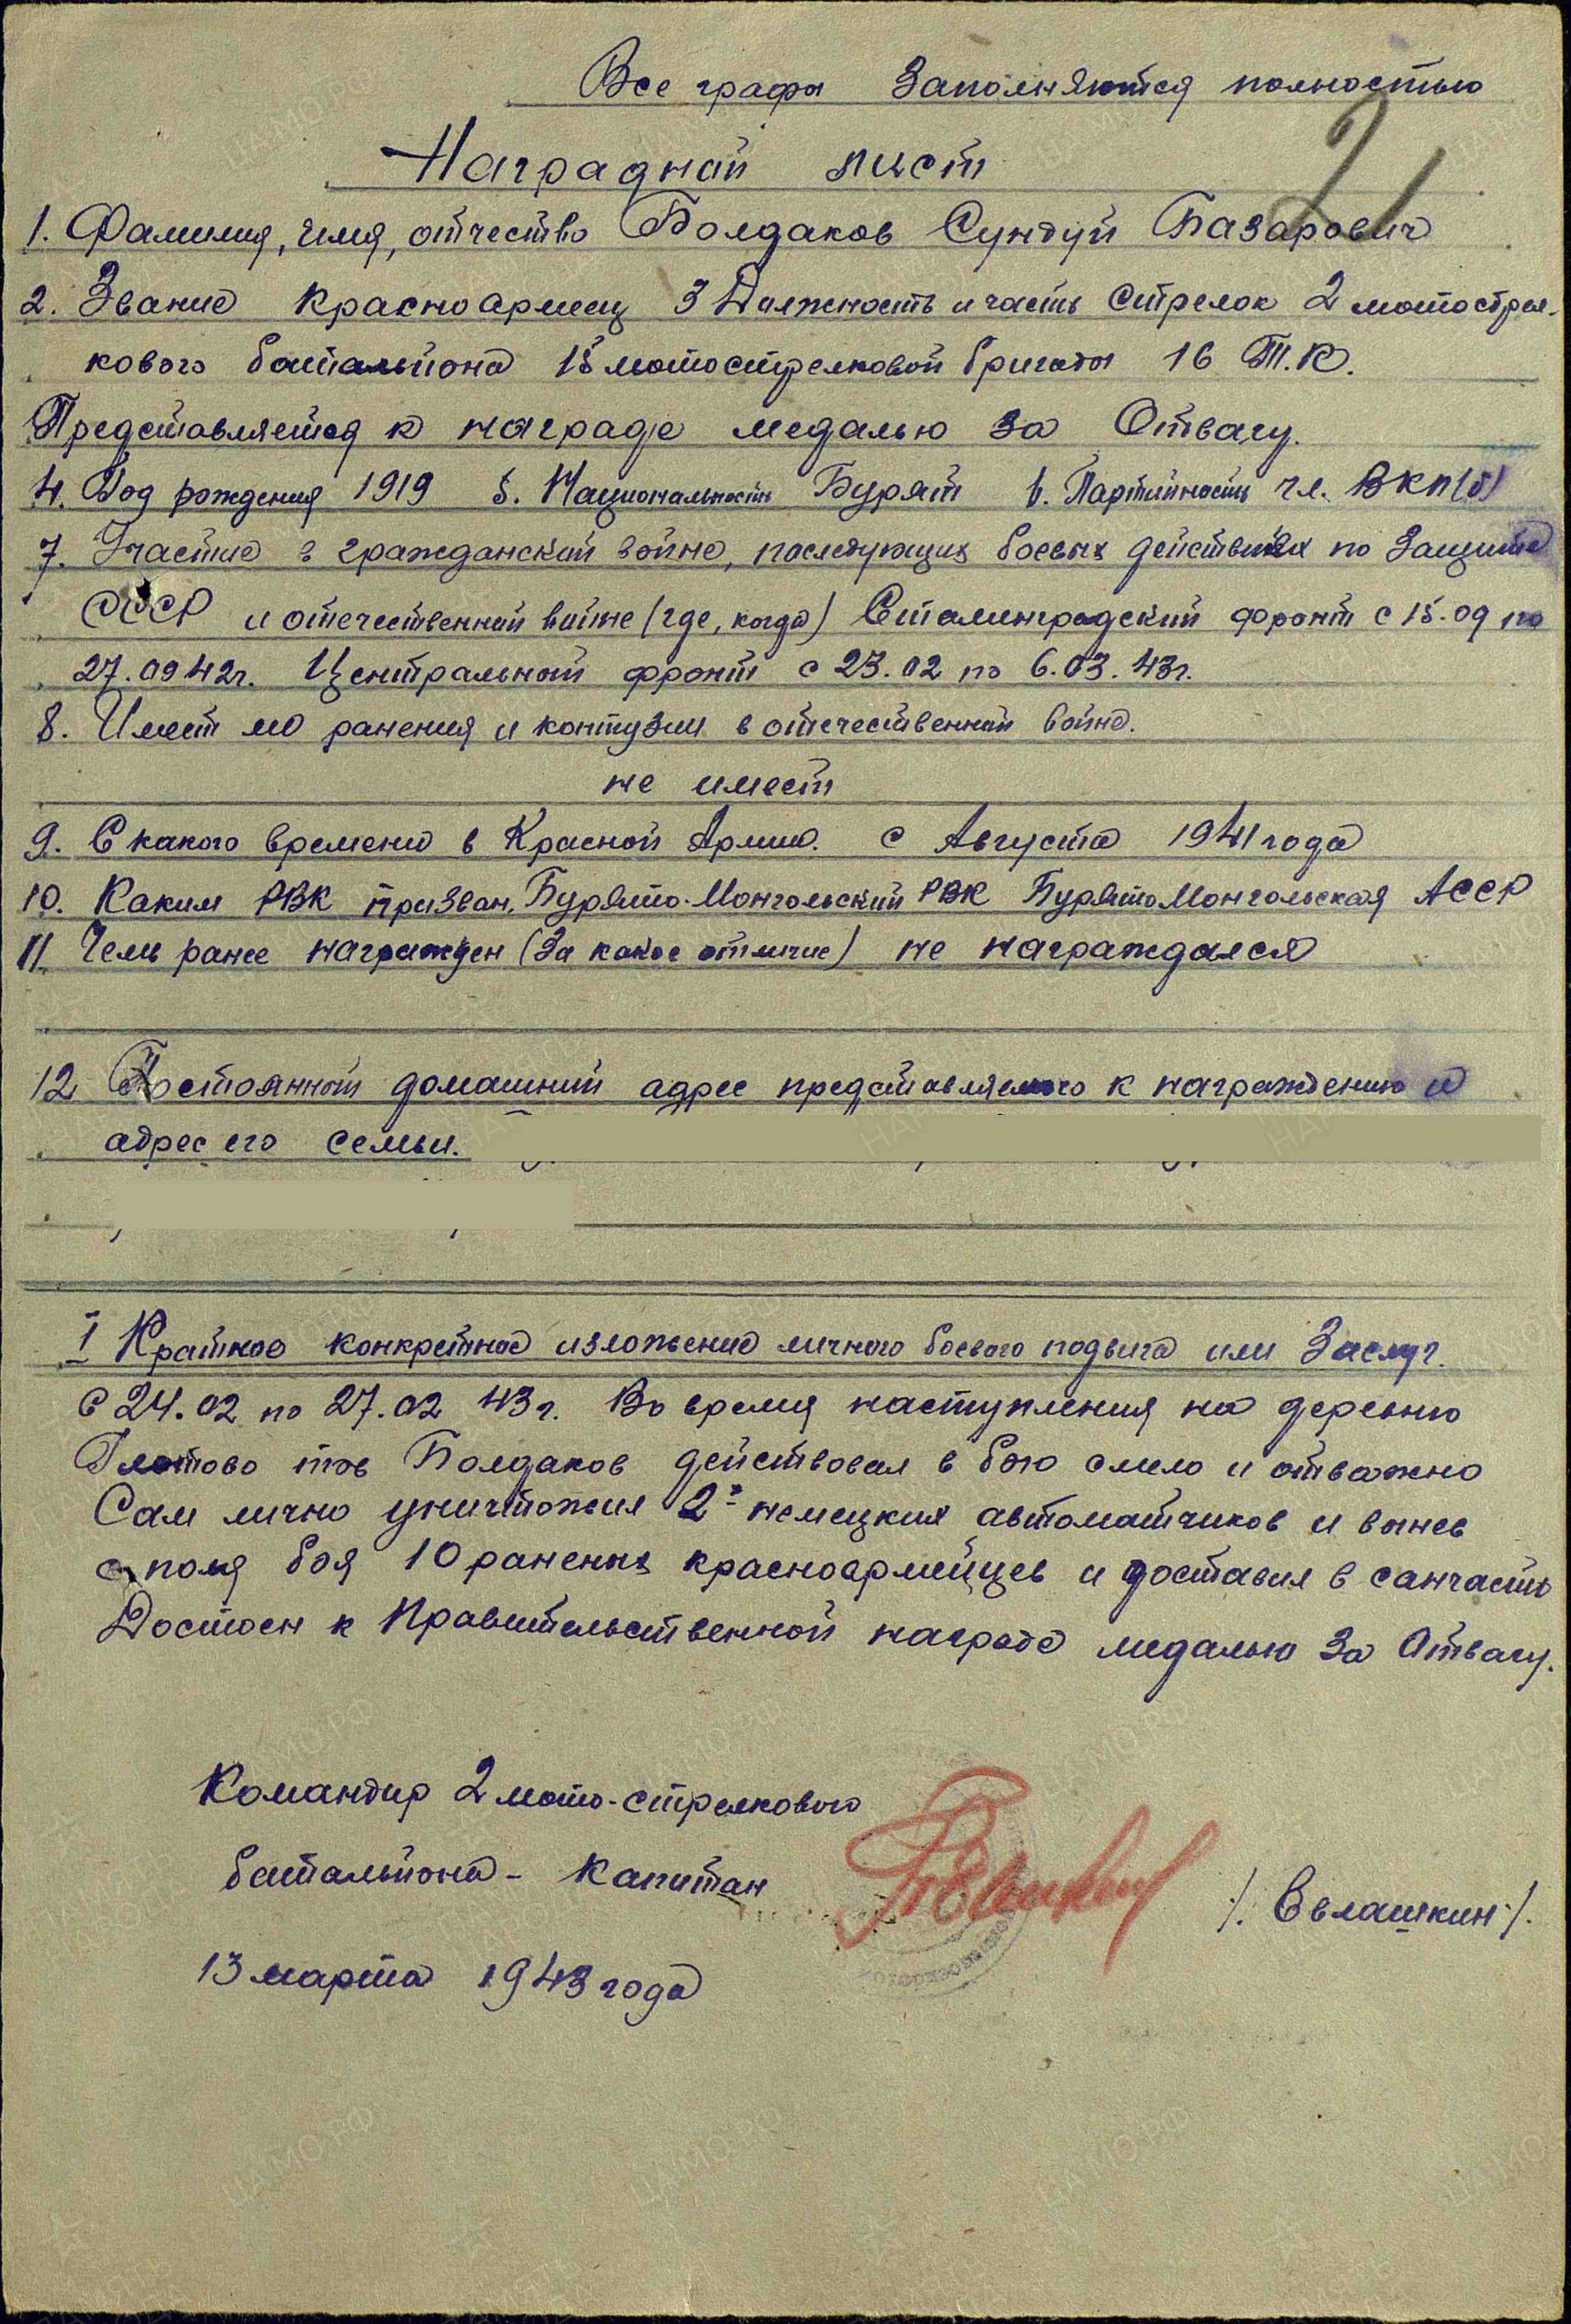 Все графы заполняются полностью
21
Наградной лист
1. Фамилия, имя, отчество Болдаков Сундуй Базарович
2. Звание красноармеец 3 Должность и часть Стрелок 2 мотострел-
кового батальйона 15 мотострелковой бригады 16 Т.К.
Представляется к награде медалью За Отвагу.
4. Год рождения 1919 5. Национальность Бурят 6. Партийность чл. ВКП(б)
7. Участие в гражданской войне, последующих боевых действиях по защите
СССР и отечественной войне (где, когда) Сталинградский фронт с 15.09 по
27.09 42г. Центральный фронт с 23.02 по 6.03.43г.
8. Имеет ли ранения и контузии в отечественной войне.
не имеет
9. С какого времени в Красной Армии. с Августа 1941 года
10. Каким РВК призван. Бурято-Монгольский РВК Бурято Монгольская АССР
11 Чем ранее награжден (За какое отличие) не награждался
12 Постоянный домашний адрес представляемого к награждению и
адрес его семьи.
I Краткое конкретное изложение личного боевого подвига или Заслуг.
С 24.02 по 27.02 43г. Во время наступления на деревню
Глотово тов Болдаков действовал в бою смело и отважно
Сам лично уничтожил 2х немецких автоматчиков и вынес
с поля боя 10 раненых красноармейцев и доставил в санчасть
Достоен к Правительственной награде медалью За Отвагу.
Командир 2 мото-стрелкового
батальйона - капитан /. Евлашкин ./.
13 марта 1943 года